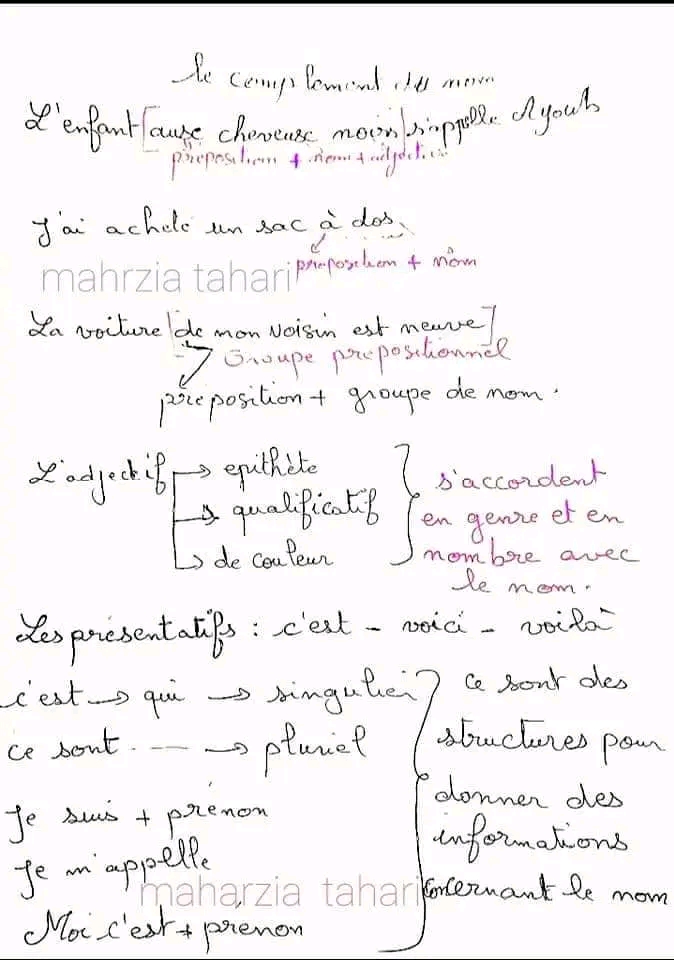 le complement du nom
L'enfant [aux cheveuse noirs] s'appelle Ayoub
preposition + nom + adjectif
J'ai acheté un sac à dos.
preposition + nom
mahrzia tahari
La voiture [de mon voisin est neuve]
Groupe prepositionnel
préposition + groupe de nom.
L'adjectif → epithète
→ qualificatif
→ de couleur
s'accordent
en genre et en
nombre avec
le nom.
Les présentatifs : c'est - voici - voilà
c'est → qui → singulier
ce sont. --- → pluriel
Je suis + prénon
Je m'appelle
Moi c'est + prénon
ce sont des
structures pour
donner des
informations
concernant le nom
maharzia tahari